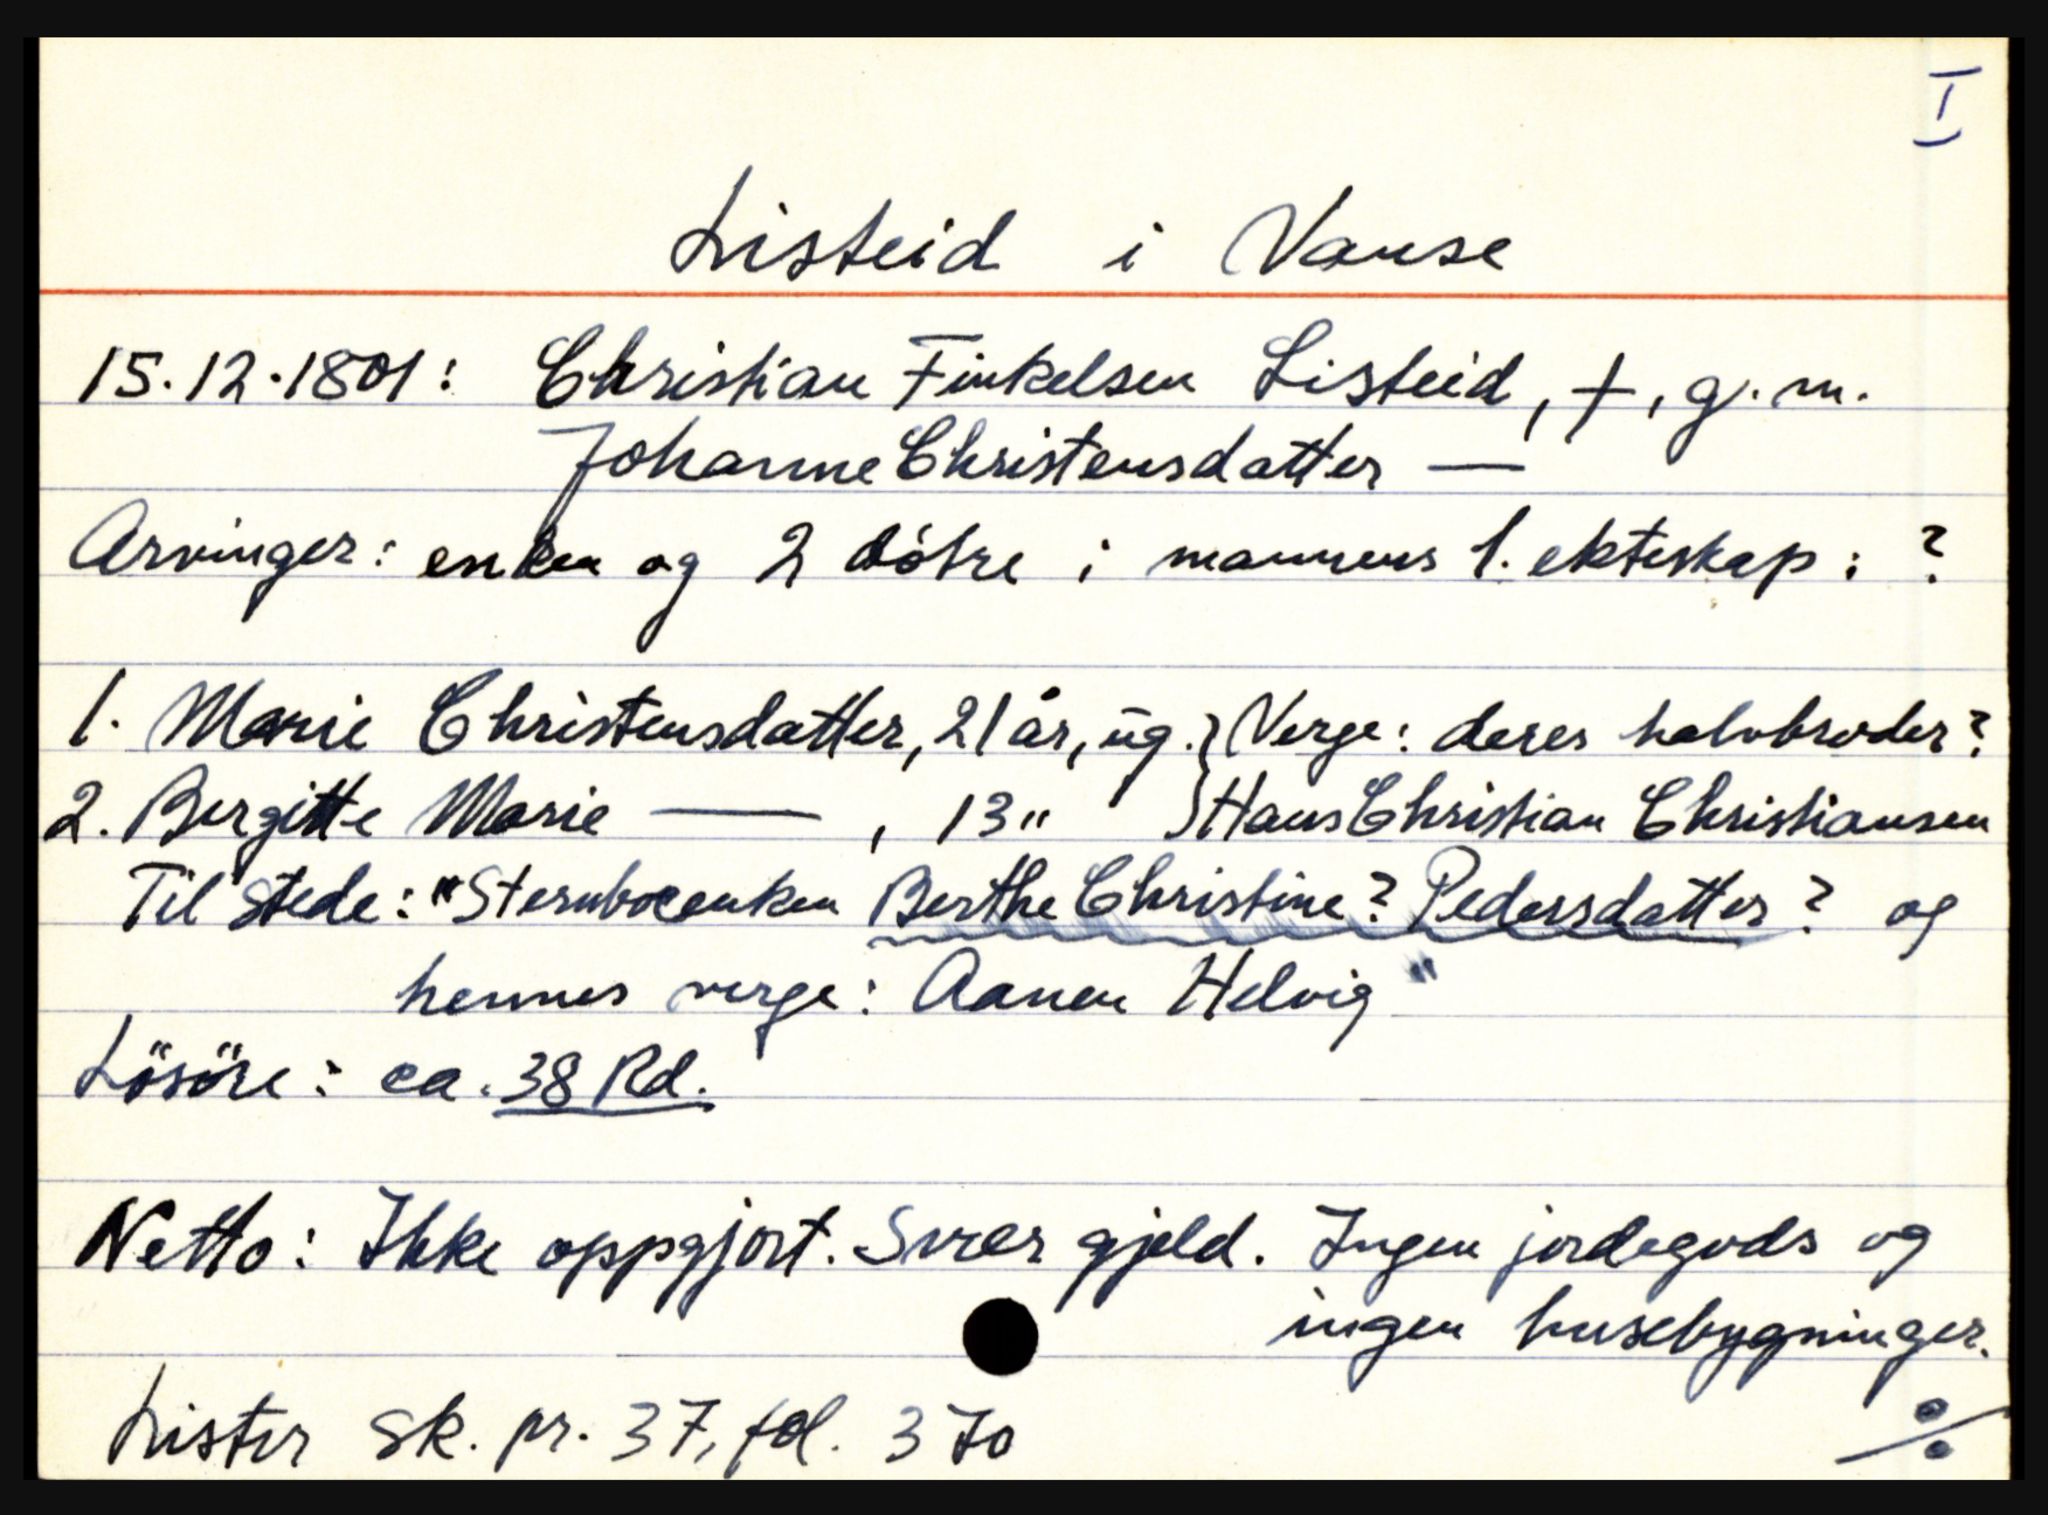 I
Listeid i Vanse
15.12.1801: Christian Finkelsen Listeid, †, g. m.
Johanne Christensdatter —
Arvinger: enken og 2 døtre i mannens 1. ekteskap: ?
1. Marie Christensdatter, 21 år, ug. } Verge: deres halvbroder?
2. Birgitte Marie — , 13 " } Hans Christian Christiansen
Til stede: "Stervboenken Berthe Christine? Pedersdatter? og
hennes verge: Aanen Helvig"
Lösöre: ca. 38 Rd.
Netto: Ikke oppgjort. Svær gjeld. Ingen jordegods og
ingen husebygninger.
Lister sk. pr. 37, fol. 370
%